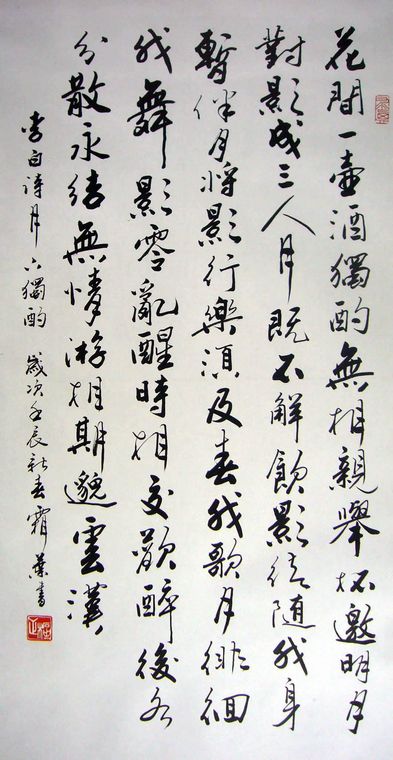 花間一壺酒獨酌無相親舉杯邀明月
對影成三人月既不解飲影徒隨我身
暫伴月將影行樂須及春我歌月徘徊
我舞影零亂醒時相交歡醉後各
分散永结無情游相期邈雲漢
李白诗月下獨酌 歲次壬辰新春霜葉書